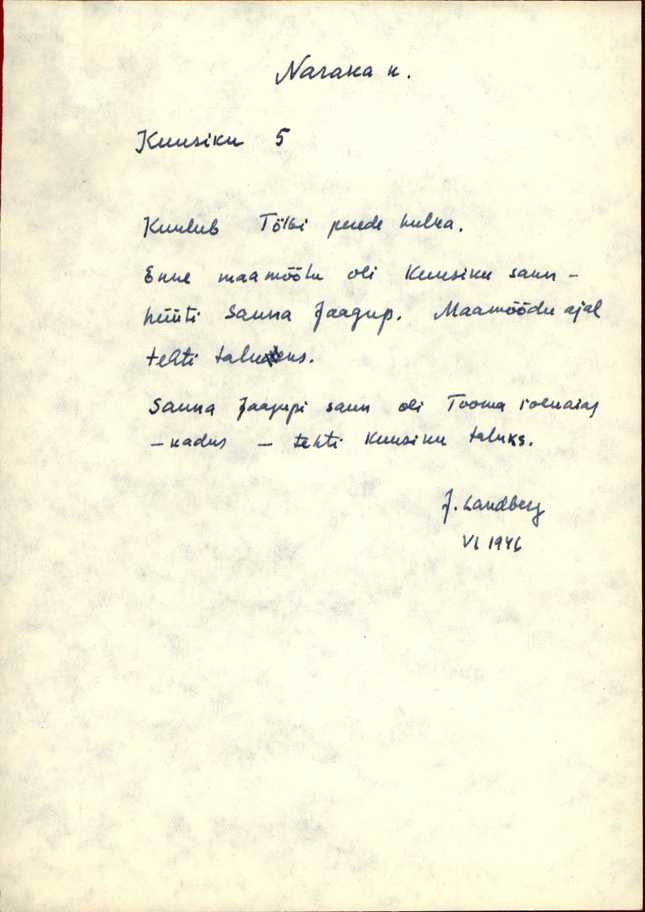 Kuusiku 5
Kuulub perede hulka.
Enne maamõõtu oli Kuusiku saun –
hüüti Sauna Jaagup. Maamõõdu ajal
tehti taluks.
Sauna Jaagupi saun oli Tooma
– kadus – tehti Kuusiku taluks.
J. Landberg
VI 1946